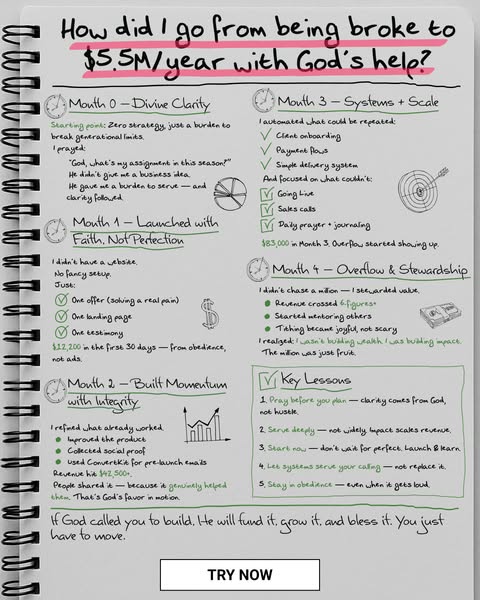 How did I go from being broke to
$5.5M/year with God's help?
Month 0 – Divine Clarity
Starting point: Zero strategy, just a burden to
break generational limits.
I prayed:
"God, what's my assignment in this season?"
He didn't give me a business idea.
He gave me a burden to serve — and
clarity followed.
Month 1 – Launched with
Faith, Not Perfection
I didn't have a website.
No fancy setup.
Just:
One offer (solving a real pain)
One landing page
One testimony
$12,200 in the first 30 days — from obedience,
not ads.
Month 2 – Built Momentum
with Integrity
I refined what already worked.
Improved the product
Collected social proof
Used ConvertKit for pre-launch emails
Revenue hit $42,500+.
People shared it — because it genuinely helped
them. That's God's favor in motion.
Month 3 – Systems + Scale
I automated what could be repeated:
Client onboarding
Payment flows
Simple delivery system
And focused on what couldn't:
Going Live
Sales calls
Daily prayer + journaling
$83,000 in Month 3. Overflow started showing up.
Month 4 – Overflow & Stewardship
I didn't chase a million — I stewarded value.
Revenue crossed 6-figures+
Started mentoring others
Tithing became joyful, not scary
I realized: I wasn't building wealth. I was building impact.
The million was just fruit.
Key Lessons
1. Pray before you plan — clarity comes from God,
not hustle.
2. Serve deeply — not widely. Impact scales revenue.
3. Start now — don't wait for perfect. Launch & learn.
4. Let systems serve your calling — not replace it.
5. Stay in obedience — even when it gets loud.
If God called you to build, He will fund it, grow it, and bless it. You just
have to move.
TRY NOW